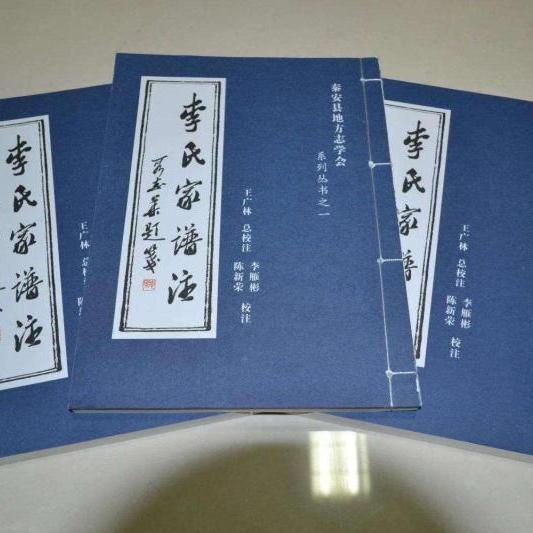 李氏家谱注
题签
秦安县地方志学会
系列丛书之一
王广林 总校注
李雁彬
陈新荣 校注
李氏家谱注
王广林 总校注
李氏家谱
王广林 总校注
李雁彬
陈新荣 校注